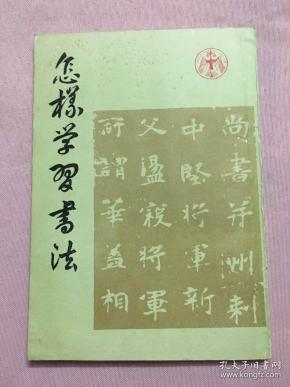 怎樣学習書法
尚書并州刺
中堅将軍新
父瑥綏将軍
所謂華盖相
孔夫子旧书网